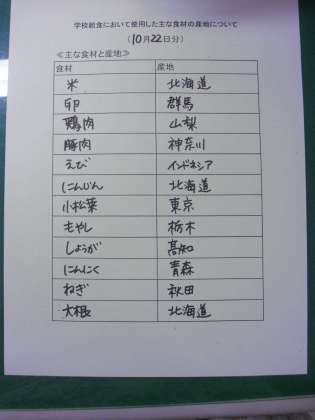 学校給食において使用した主な食材の産地について
(10月22日分)
≪主な食材と産地≫
食材 産地
米 北海道
卵 群馬
鶏肉 山梨
豚肉 神奈川
えび インドネシア
にんじん 北海道
小松菜 東京
もやし 栃木
しょうが 高知
にんにく 青森
ねぎ 秋田
大根 北海道